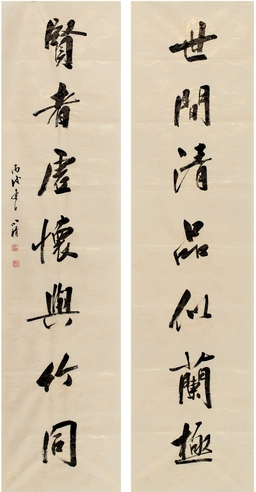 世間清品似蘭極
賢者虛懷與竹同
丙戌年